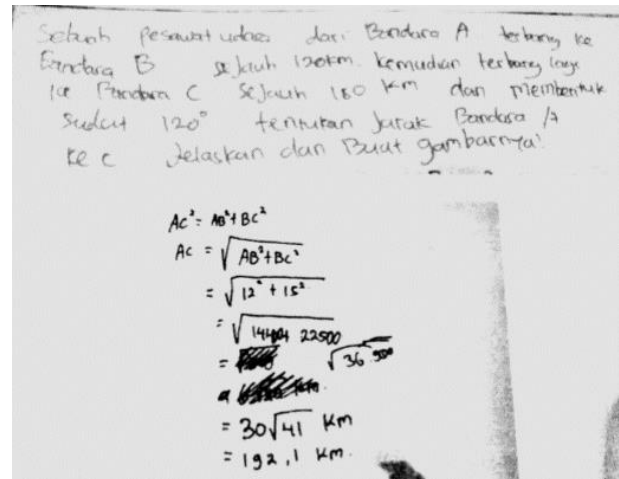 Sebuah pesawat udara dari Bandara A terbang ke
Bandara B sejauh 120km. kemudian terbang lagi
ke Bandara C sejauh 180 km dan membentuk
sudut 120° tentukan Jarak Bandara A
ke C Jelaskan dan Buat gambarnya!
AC² = AB² + BC²
AC = √AB² + BC²
= √12² + 15²
= √ 22500
=
√36 900
= 30√41 km
= 192,1 km.